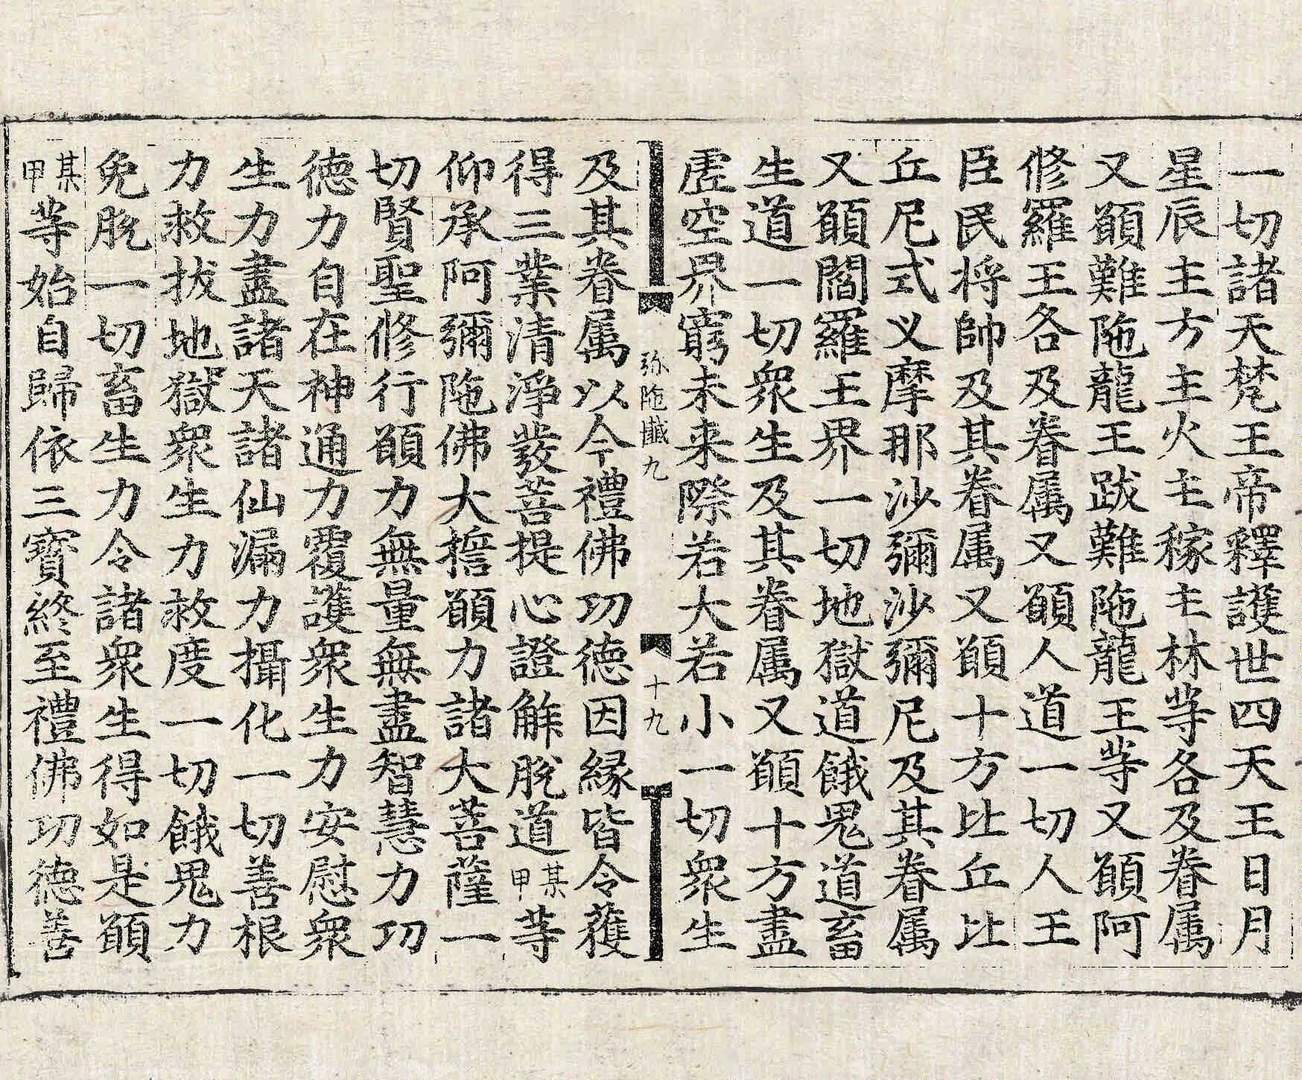 一切諸天梵王帝釋護世四天王日月
星辰主方主火主稼主林等各及眷属
又願難陁龍王跋難陁龍王等又願阿
修羅王各及眷属又願人道一切人王
臣民将帥及其眷属又願十方比丘比
丘尼式义摩那沙彌沙彌尼及其眷属
又願閻羅王界一切地獄道餓鬼道畜
生道一切衆生及其眷属又願十方盡
虛空界窮未来際若大若小一切衆生
弥陁懺九
十九
及其眷属以今禮佛功德因緣皆令蒦
得三業清淨發菩提心證解脫道某甲等
仰承阿彌陁佛大擔願力諸大菩薩一
切賢聖修行願力無量無盡智慧力功
德力自在神通力覆護衆生力安慰衆
生力盡諸天諸仙漏力攝化一切善根
力救拔地獄衆生力救度一切餓鬼力
免脫一切畜生力令諸衆生得如是願
某甲等始自歸依三寳終至禮佛功德善